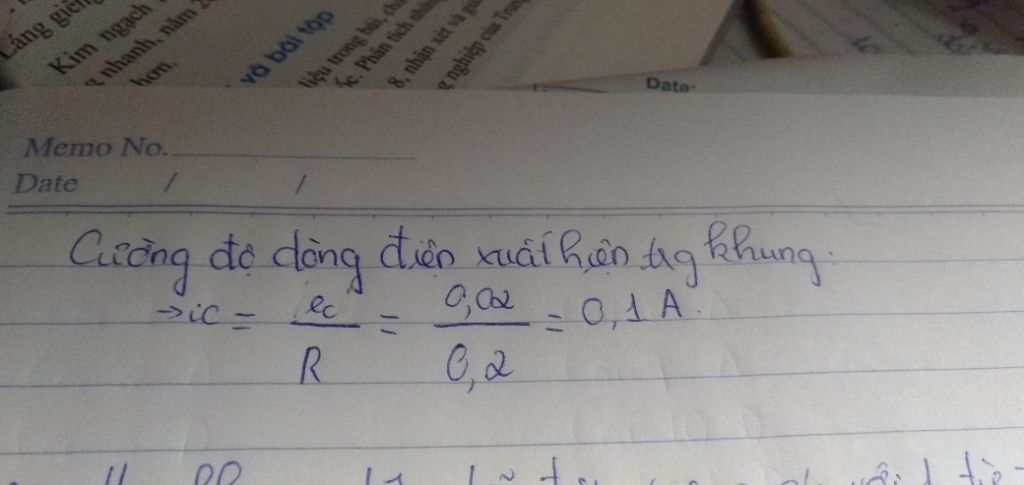 Láng giềng
Kim ngạch
g nhanh, năm 2
hơn.
và bài tập
liệu trong bài, 
8, nhận xét và
g nghiệp của Trung
Date:
Memo No.
Date / /
Cường độ dòng điện xuất hiện tr̀g khung.
→ ic = ec/R = 0,02/0,2 = 0,1 A.